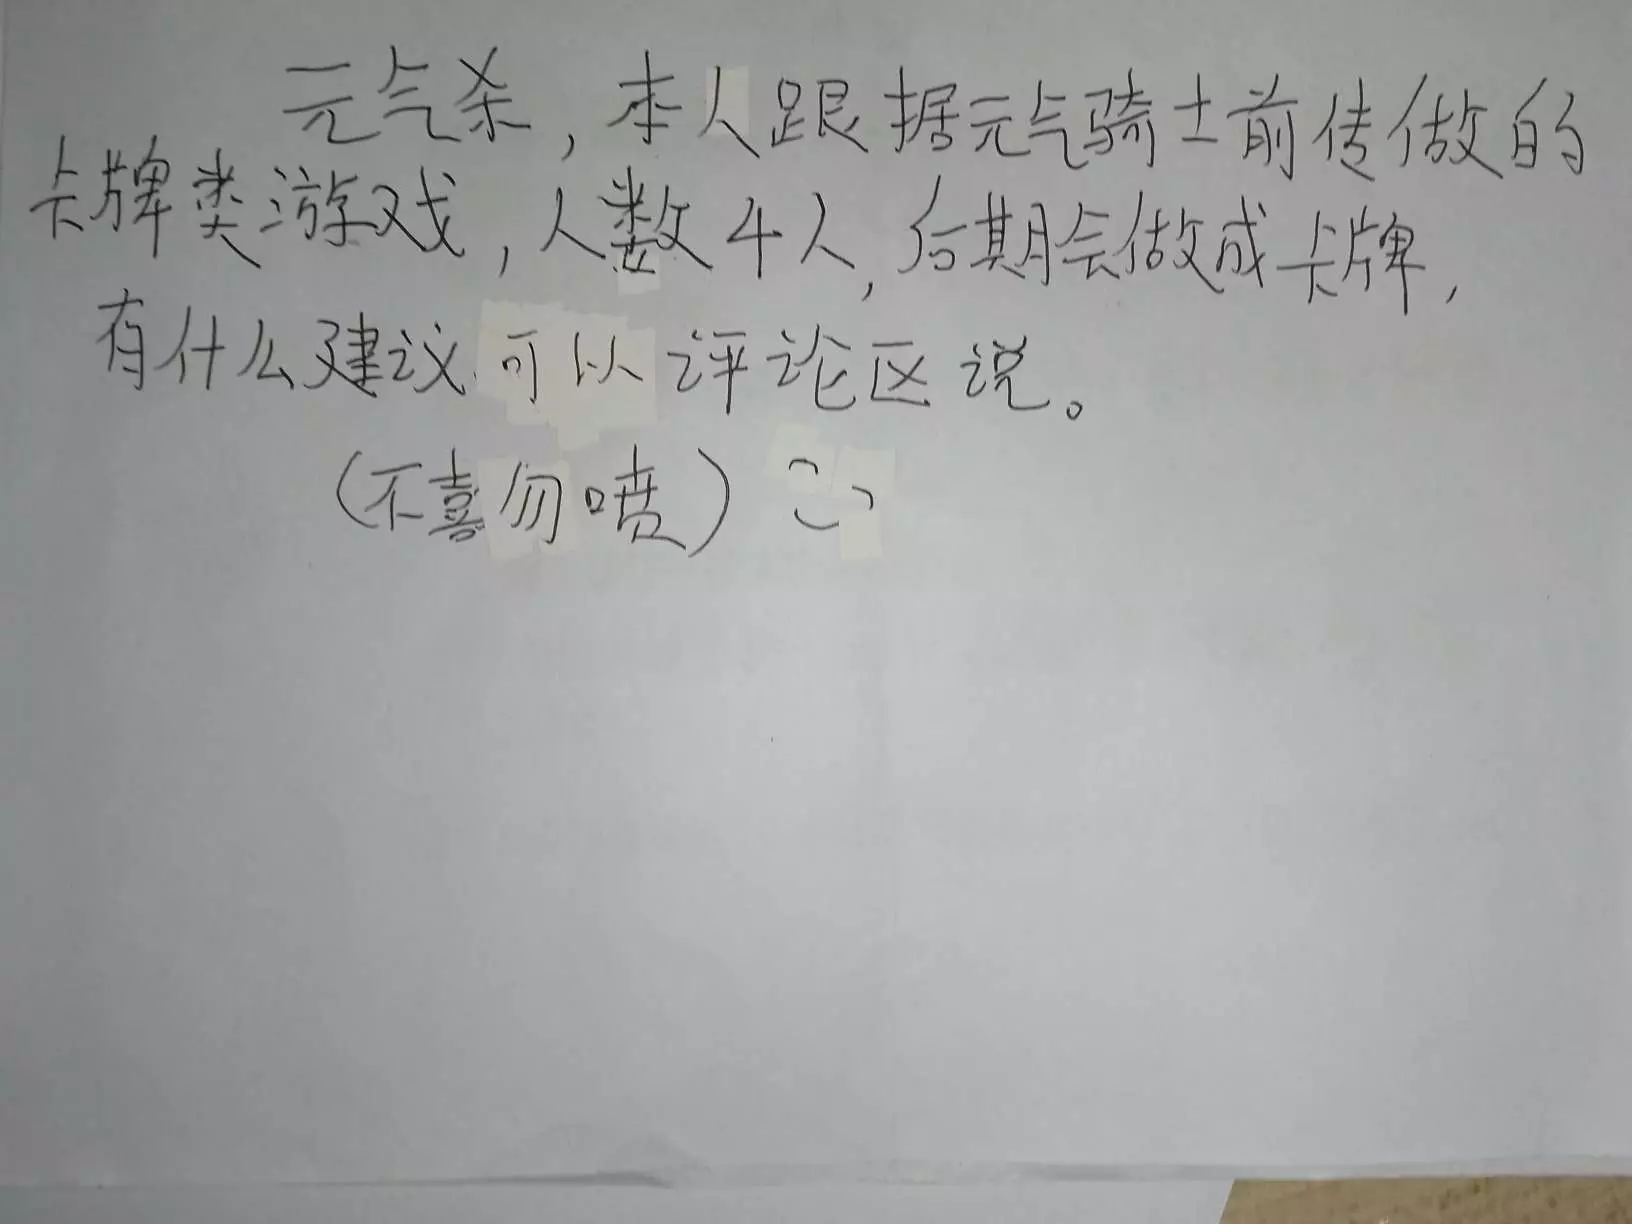 元气杀，本人跟据元气骑士前传做的
卡牌类游戏，人数4人，后期会做成卡牌，
有什么建议可以评论区说。
（不喜勿喷）